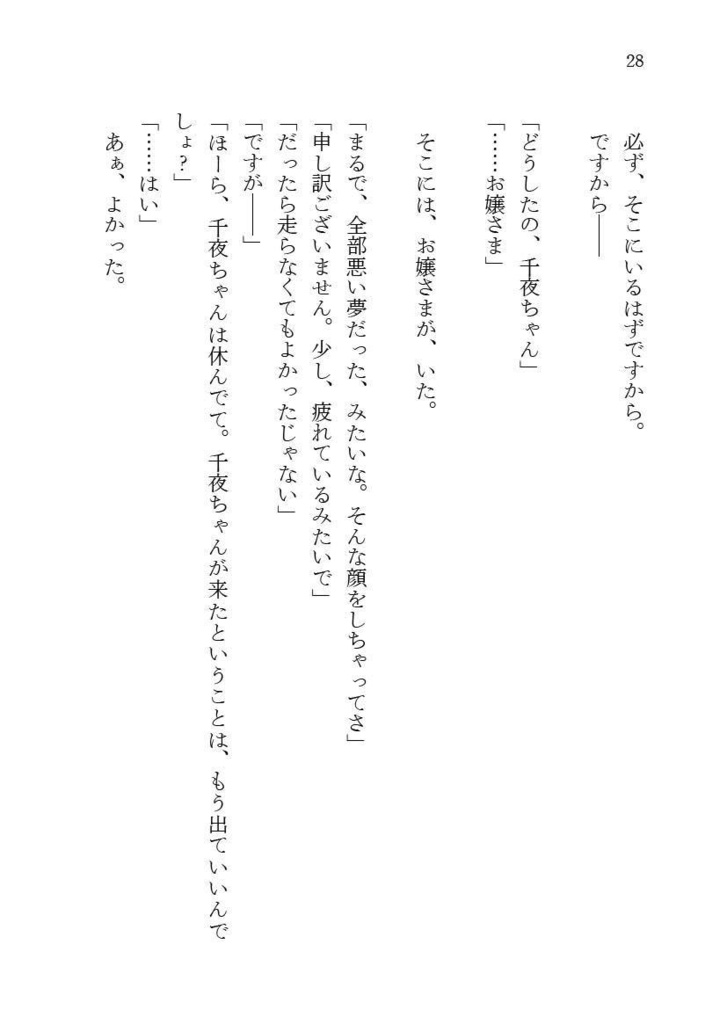 28
必ず、そこにいるはずですから。
ですから――
「どうしたの、千夜ちゃん」
「……お嬢さま」
そこには、お嬢さまが、いた。
「まるで、全部悪い夢だった、みたいな。そんな顔をしちゃってさ」
「申し訳ございません。少し、疲れているみたいで」
「だったら走らなくてもよかったじゃない」
「ですが――」
「ほーら、千夜ちゃんは休んでて。千夜ちゃんが来たということは、もう出ていいんで
しょ?」
「……はい」
あぁ、よかった。